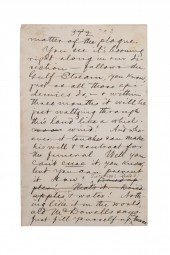 matter of the plague.
You see it's booming
right along in our di-
rection—follows the
Gulf Stream, you know,
just as all those epi-
demics do,—& within
three months it will be
just waltzing through
this land like a whirl-
wind! And who-
ever it touches can make
his will & contract for
the funeral. Well you
can't cure it, you know,
but you can prevent
it. How?
apples & water! Noth-
ing like it in the world,
old McDowells says—
just fill yourself up